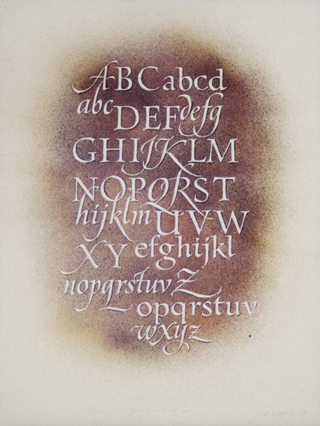 ABCabcd
abc DEF defg
GHIJKLM
NOPQRST
hijklm UVW
XY efghijkl
nopqrstuv Z
opqrstuv
wxyz